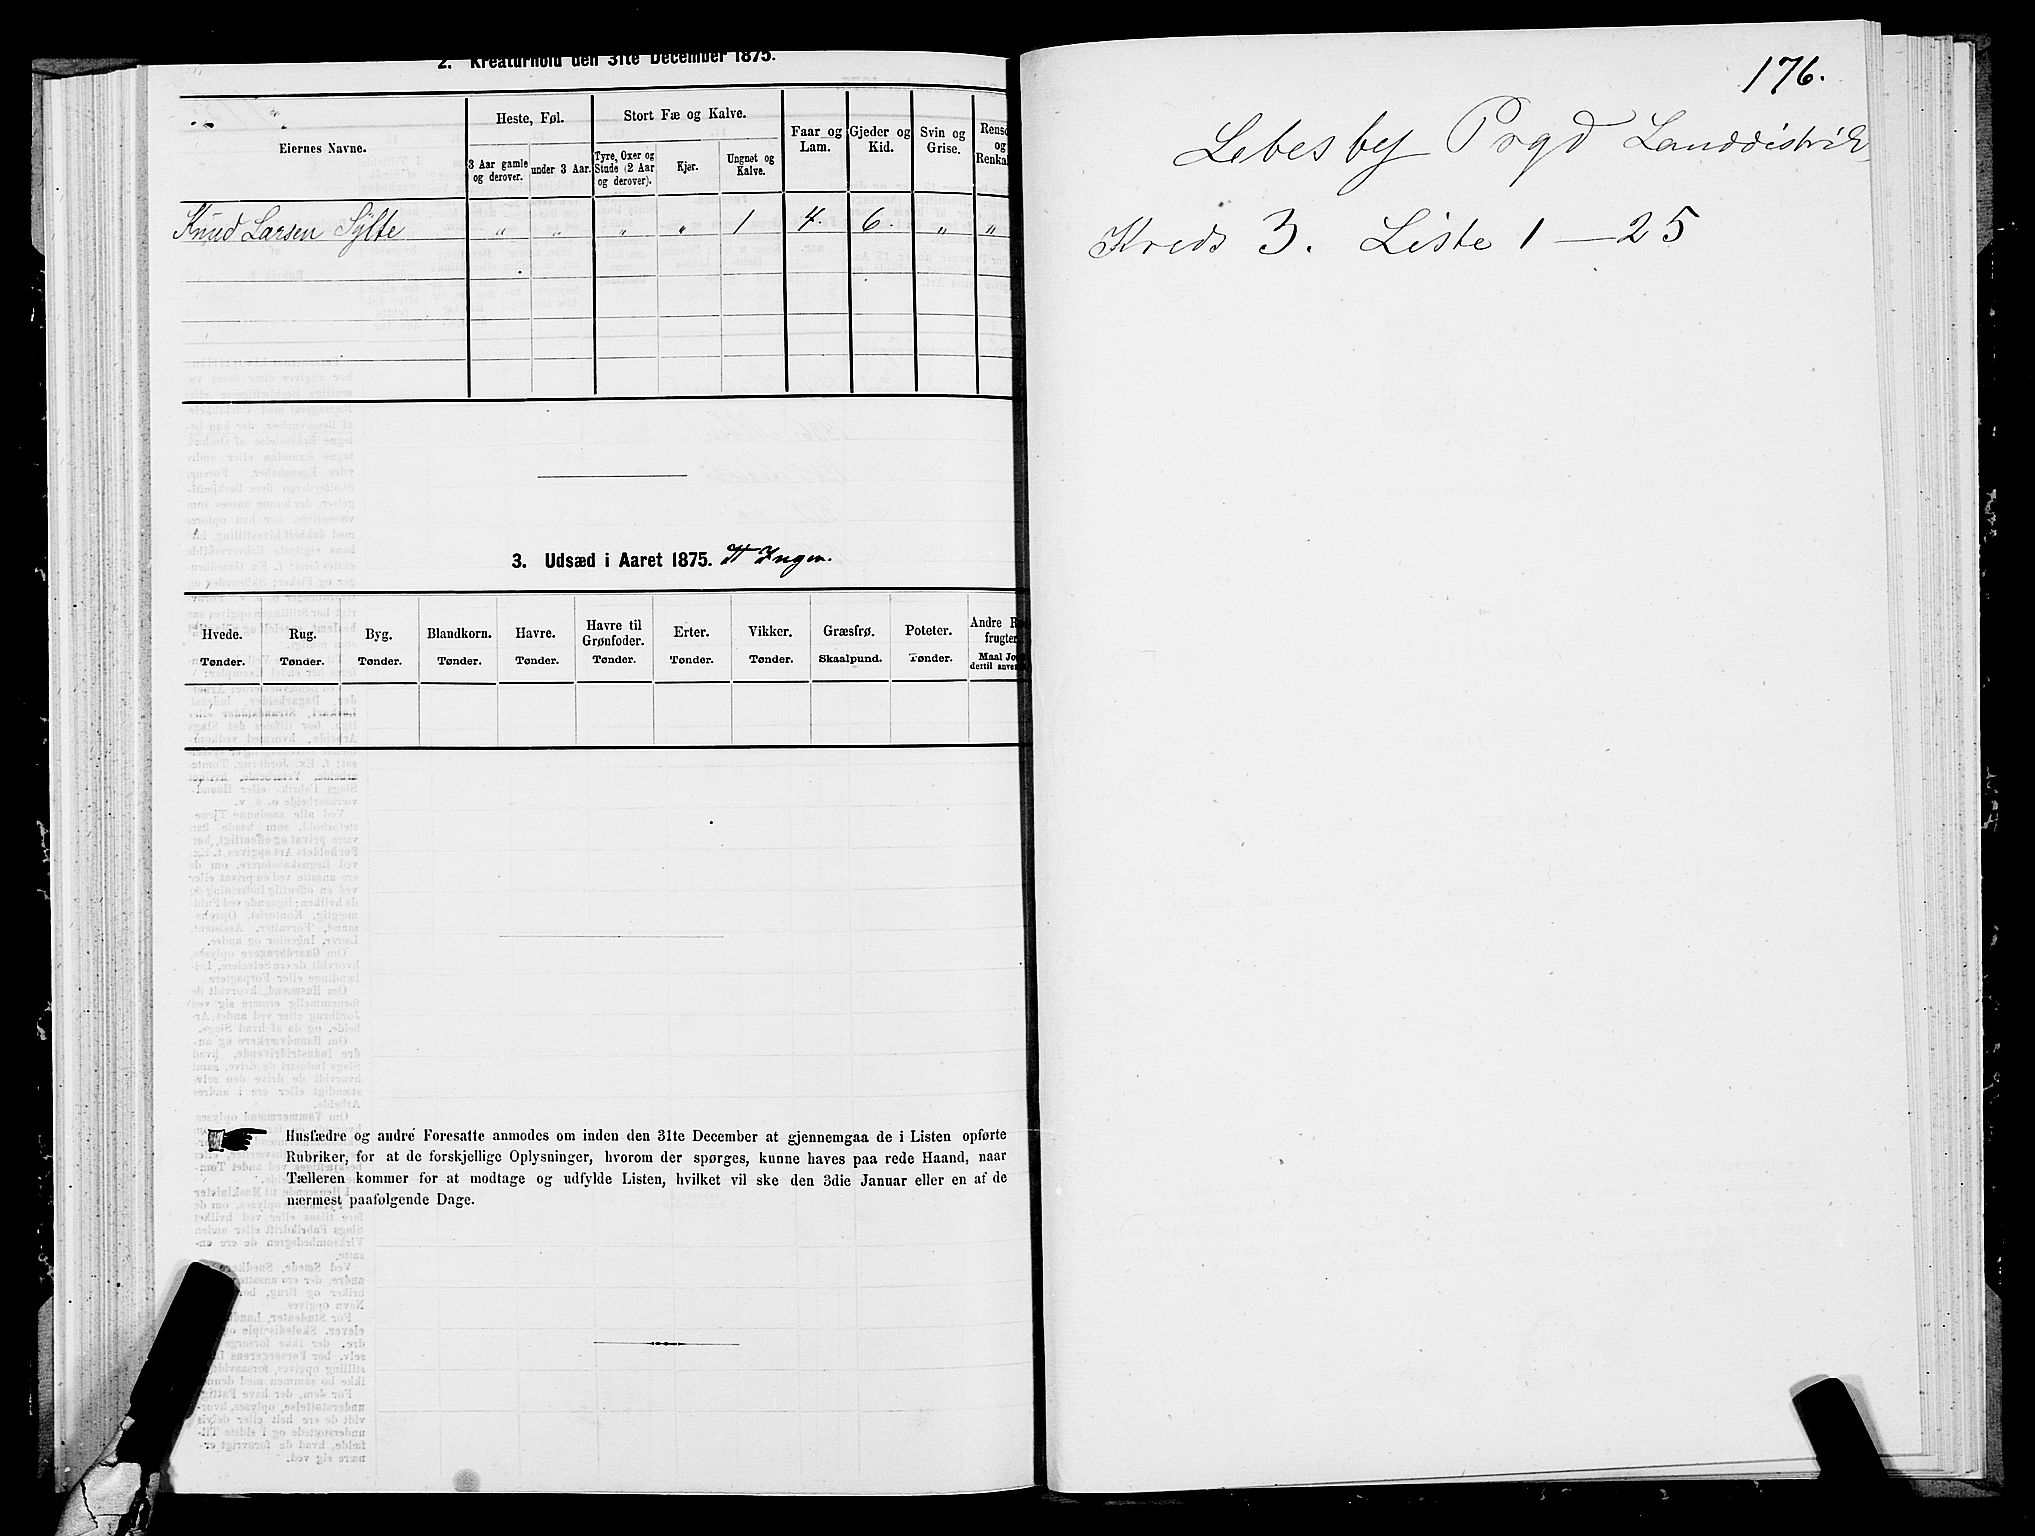 2. Kreaturhold den 31te December 1875.
Eiernes Navne.
Heste, Føl.
Stort Fæ og Kalve.
Faar og Lam.
Gjeder og Kid.
Svin og Grise.
3 Aar gamle og derover.
under 3 Aar.
Tyre, Oxer og Stude (2 Aar og derover).
Kjør.
Ungnøt og Kalve.
Knud Larsen Sylte " " " " 1 4. 6. " "
3. Udsæd i Aaret 1875. Ingen.
Hvede. Rug. Byg. Blandkorn. Havre. Havre til Grønfoder. Erter. Vikker. Græsfrø. Poteter.
Tønder. Tønder. Tønder. Tønder. Tønder. Tønder. Tønder. Tønder. Skaalpund. Tønder.
Husfædre og andre Foresatte anmodes om inden den 31te December at gjennemgaa de i Listen opførte
Rubriker, for at de forskjellige Oplysninger, hvorom der spørges, kunne haves paa rede Haand, naar
Tælleren kommer for at modtage og udfylde Listen, hvilket vil ske den 3die Januar eller en af de
nærmest paafølgende Dage.
176.
Lebesby Prgd Landdistrik
Kreds 3. Liste 1 — 25